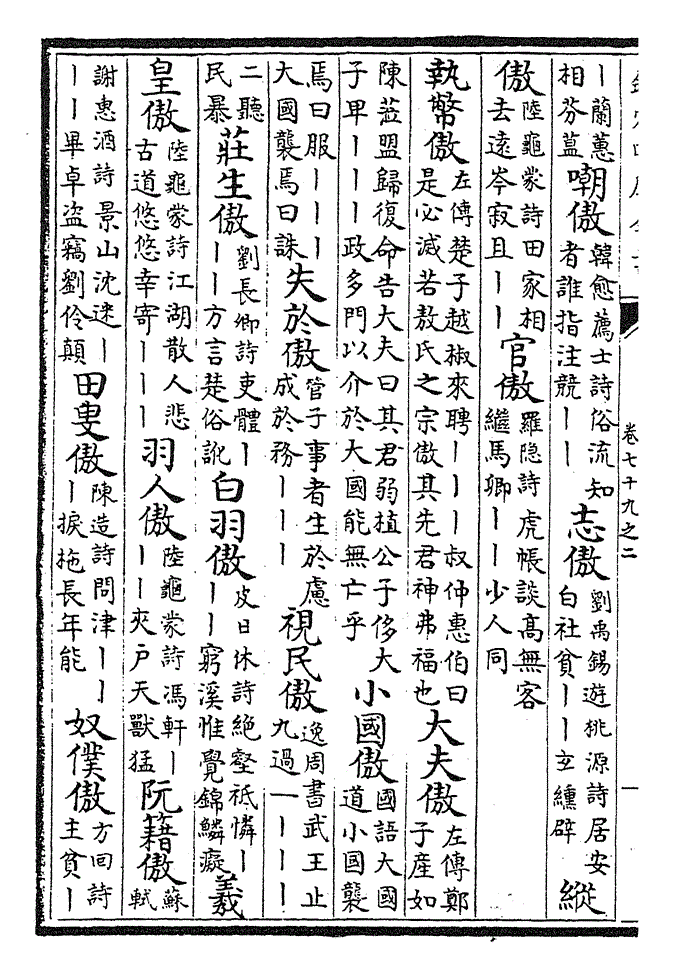 丨蘭蕙相芬䔲 嘲傲 韓愈薦士詩俗流知者誰指注競丨丨 志傲 劉禹錫遊桃源詩居安白社貧丨丨玄纁辟 縱
傲 陸龜蒙詩田家相去遠岑寂且丨丨 官傲 羅隐詩虎帳談髙無客繼馬卿丨丨少人同
執幣傲 左傳楚子越椒來聘丨丨丨叔仲惠伯曰是必滅若敖氏之宗傲其先君神弗福也 大夫傲 左傳鄭子產如
陳蒞盟歸復命告大夫曰其君弱植公子侈大子卑丨丨丨政多門以介於大國能無亡乎 小國傲 國語大國道小國襲
焉曰服丨丨丨大國襲焉曰誅 失於傲 管子事者生於慮成於務丨丨丨 視民傲 逸周書武王止九過一丨丨丨
二聽民暴 莊生傲 劉長卿詩吏體丨丨丨方言楚俗訛 白羽傲 皮日休詩絶壑祗憐丨丨丨窮溪惟覺錦鱗癡 羲
皇傲 陸龜蒙詩江湖散人悲古道悠悠幸寄丨丨丨 羽人傲 陸龜蒙詩馮軒丨丨丨夾户天獸猛 阮籍傲 蘇軾
謝惠酒詩景山沈迷丨丨丨畢卓盗竊劉伶顛 田叟傲 陳造詩問津丨丨丨捩拖長年能 奴僕傲 方回詩主貧丨
卷七十九之二